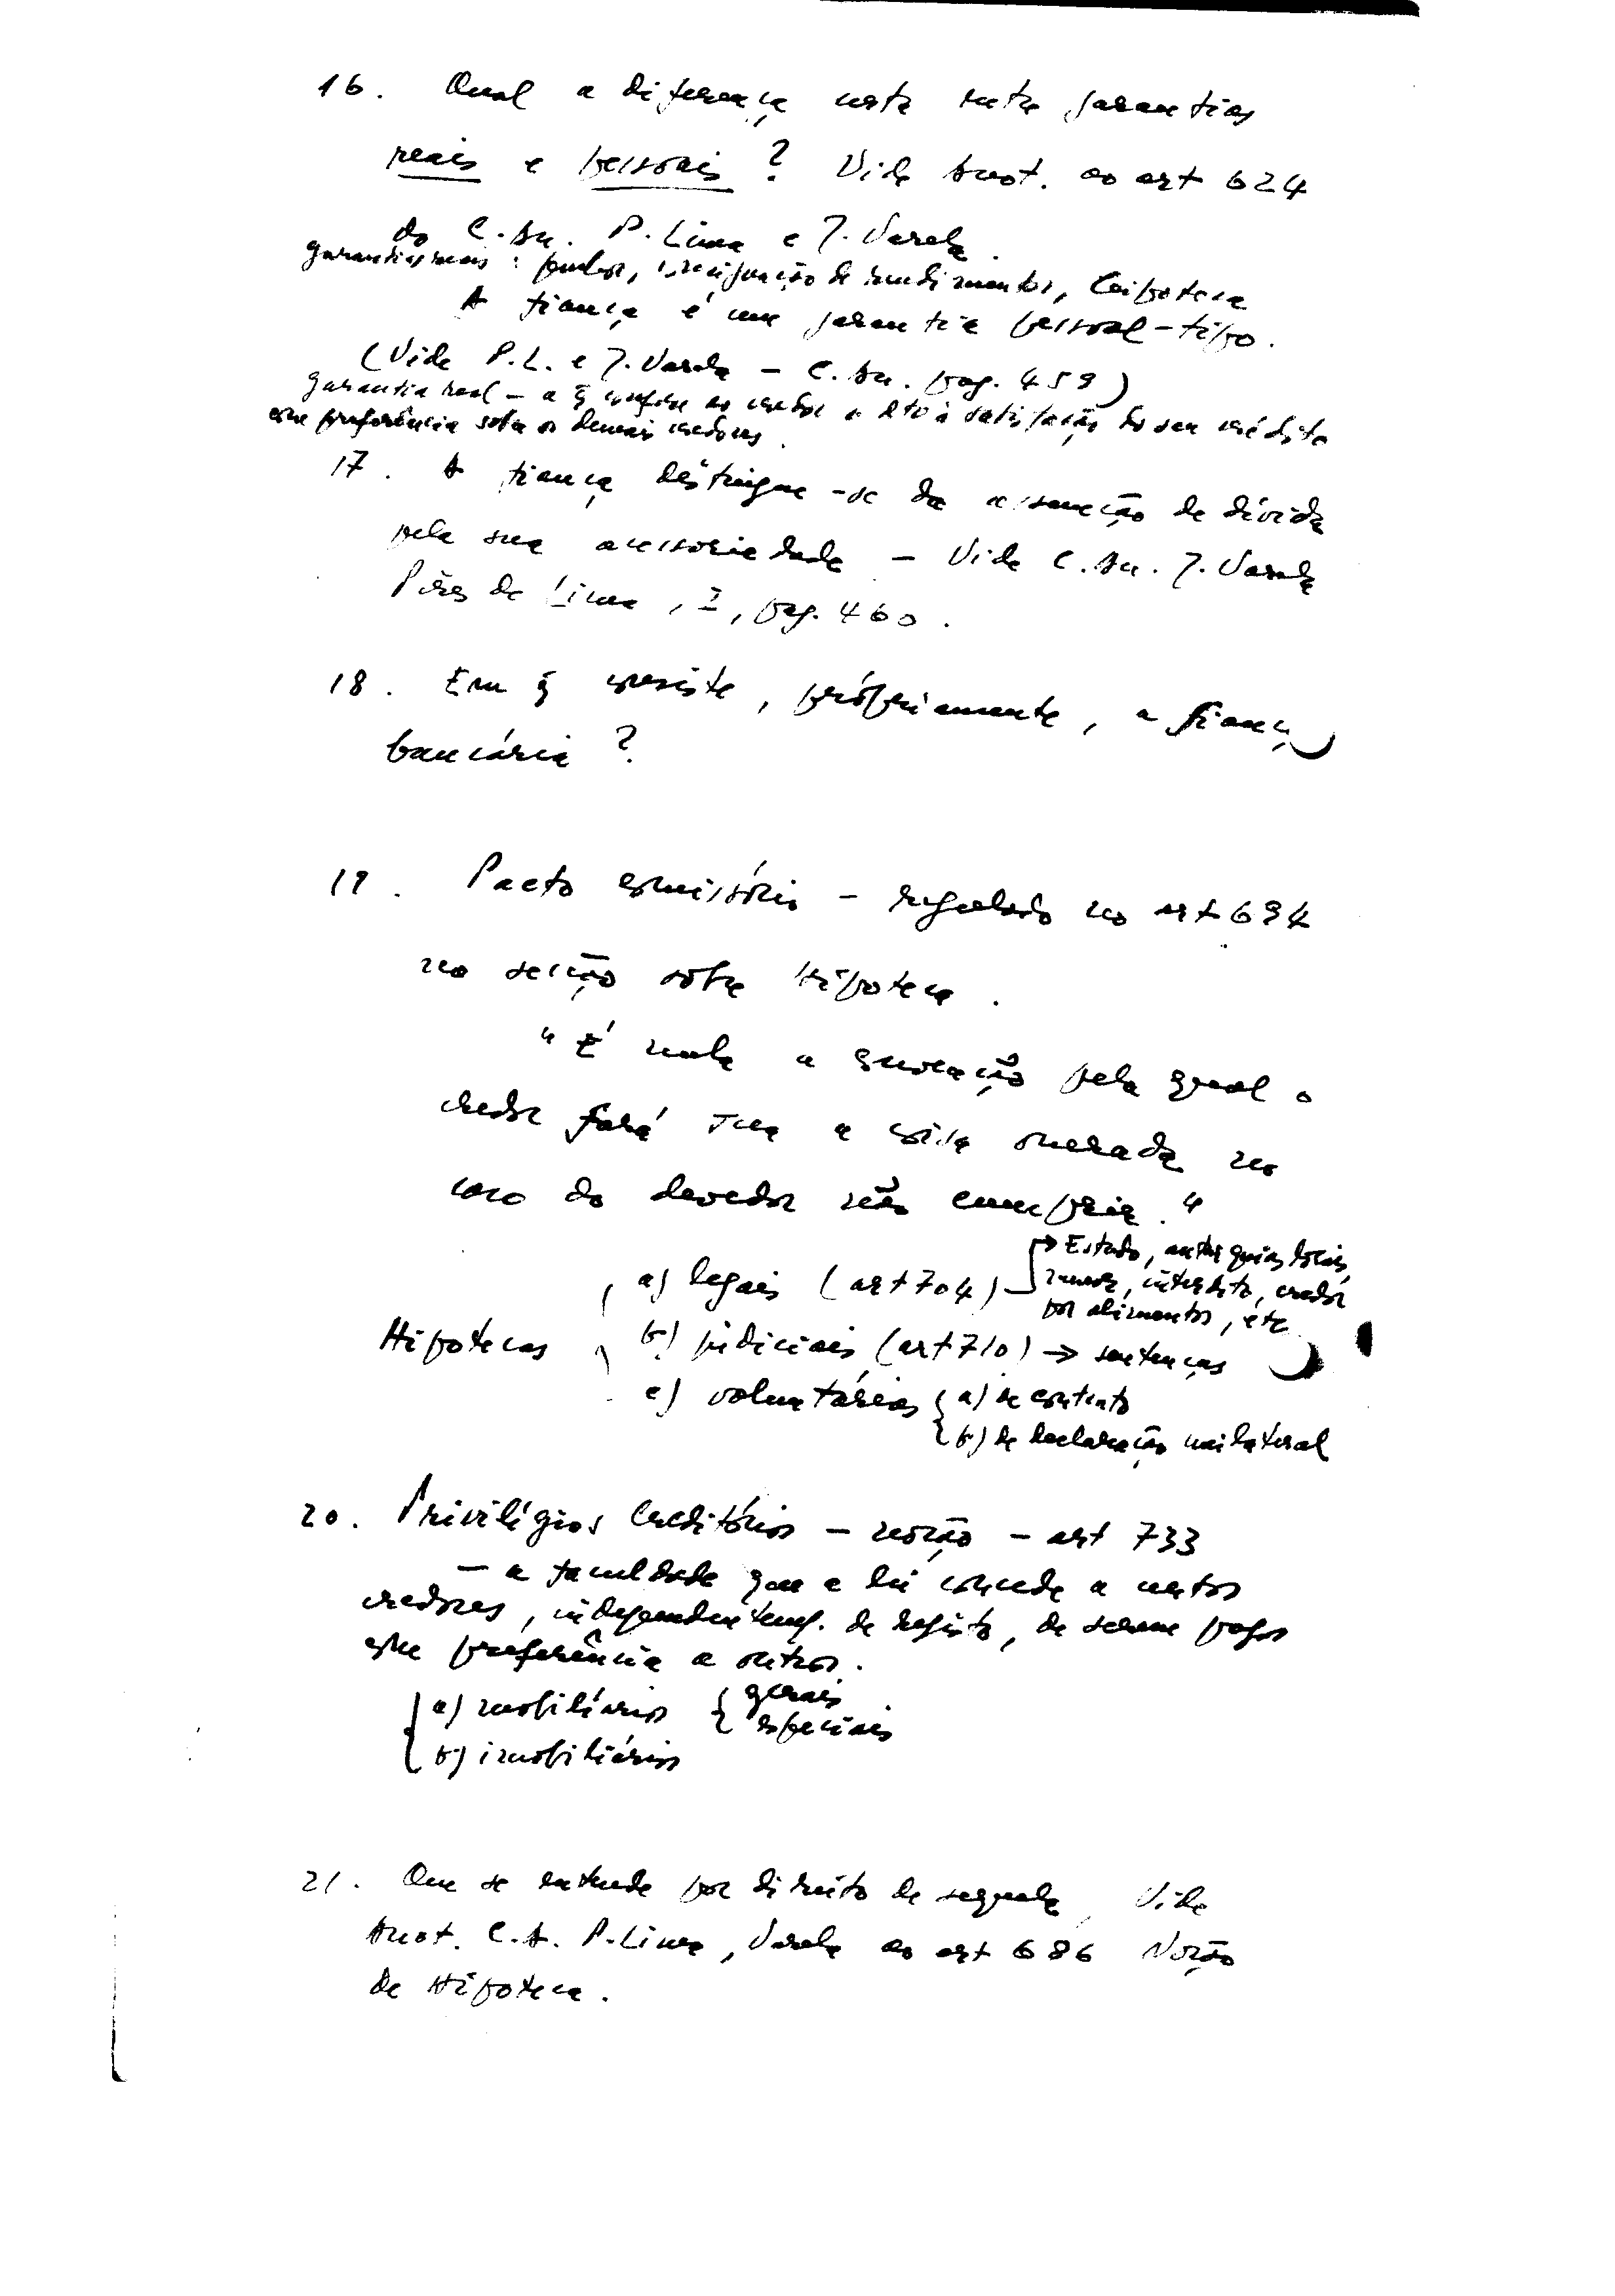 16. Qual a diferença nota entre garantias
reais e pessoais? Vide Anot. ao art 624
do C. An. P. Lima e J. Varela.
garantias reais: penhor, consignação de rendimentos, hipoteca
A fiança é uma garantia pessoal-tipo.
(Vide P.L. e J. Varela – C. An. pag. 459)
garantia real – a q̃ confere ao credor o dto à satisfação do seu crédito
com preferência sobre os demais credores.
17. A fiança distingue-se da assunção de dívida
pela sua acessoriedade – Vide C. An. J. Varela
Pires de Lima, I, pag. 460.
18. Em q̃ consiste, própriamente, a fiança
bancária?
19. Pacto comissório – regulado no art 694
na secção sobre Hipoteca.
"É nula a convenção pela qual o
credor fará sua a coisa onerada no
caso do devedor não cumprir."
Hipotecas
a) legais (art 704) → Estado, autarquias locais,
menor, interdito, credor
por alimentos, etc
b) judiciais (art 710) → sentenças
c) voluntárias { a) de contrato
b) de declaração unilateral
20. Privilégios Creditórios – noção – art 733
– a faculdade que a lei concede a certos
credores, independentemte. de registo, de serem pagos
com preferência a outros.
{ a) mobiliários { gerais
especiais
b) imobiliários
21. Que se entende por direito de sequela, Vide
Anot. C.A. P. Lima, Varela ao art 686 Noção
de Hipoteca.